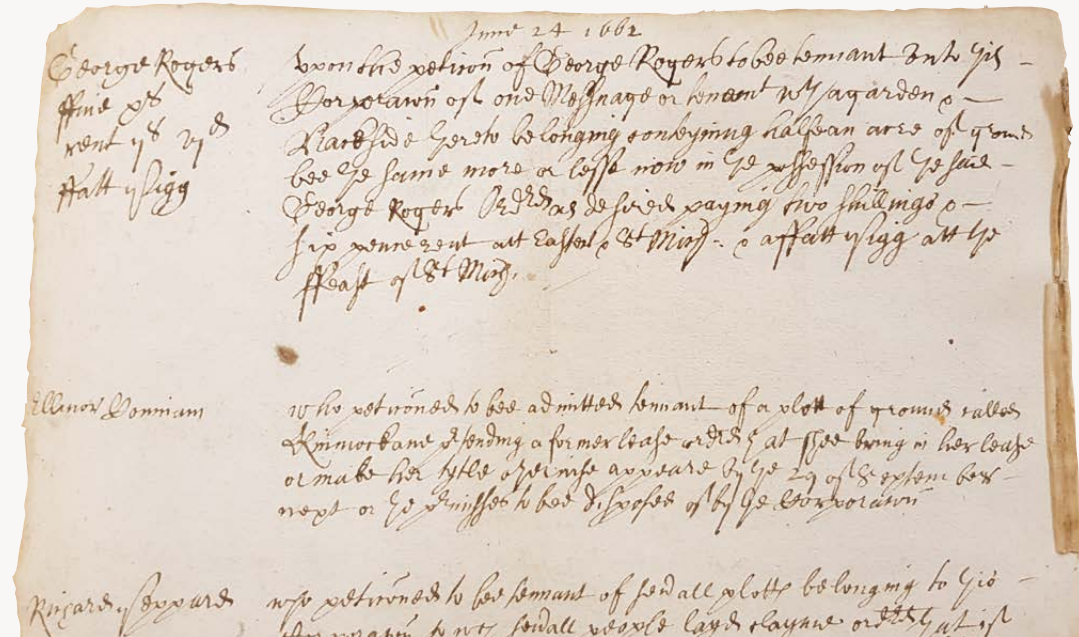 June 24 1662
George Rogers
ffine xs
rent ijs vjd
ffatt higg
Upon the peticōn of George Rogers to bee tennant unto this
Corporacōn of one Messuage or tenemt wth a garden &
Backside thereto belonging conteyning halfe an acre of ground
bee ye same more or lesse now in ye possession of ye said
George Rogers Ordrd as desired paying two shillings &
six pence rent att Easter & St Mich: & a ffatt higg att the
ffeast of St Mich.
Ellinor Bonniam
who peticōned to bee admitted tennant of a plott of ground called
Kinnockane p̱tending a former lease ordrd yt shee bring in her lease
or make her tytle otherwise appeare by ye 29 of September
next or ye p̱misses to bee disposed of by ye Corporacōn
Richard Sheppard
who peticōned to bee tennant of sevrall plotts belonging to this
Corporacōn to wch sevrall people layd clayme ordrd that